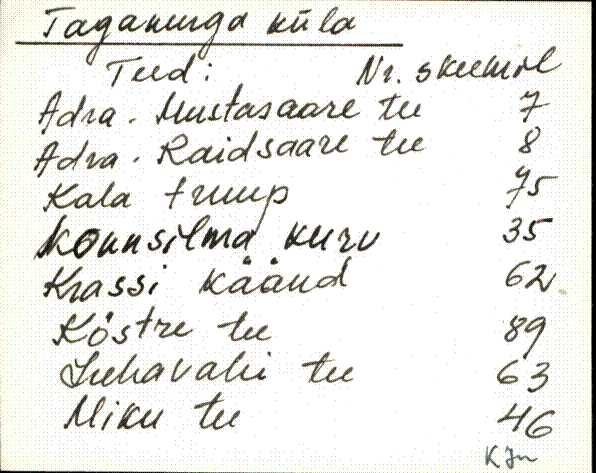 Taganurga küla
Teed: Nr. skeemil
Adra-Mustasaare tee 7
Adra-Raidsaare tee 8
Kala truup 75
Konnsilma kuru 35
Krassi käänd 62
Köstre tee 89
Luhavahi tee 63
Miku tee 46